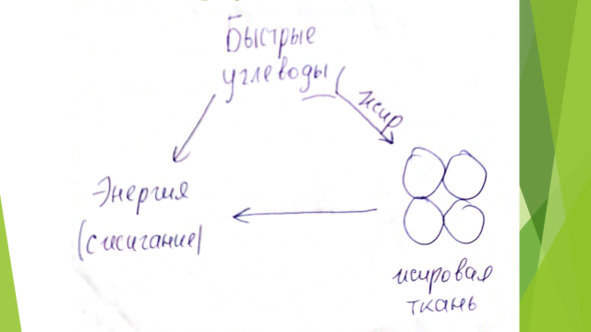 Быстрые
углеводы
жир
Энергия
(сжигание)
жировая
ткань